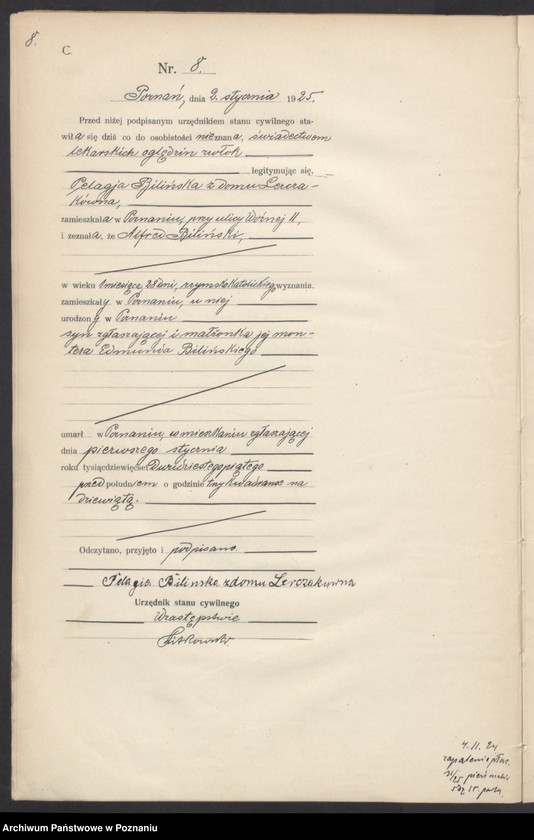 8.
C.
Nr. 8.
Poznań, dnia 2. stycznia 1925.
Przed niżej podpisanym urzędnikiem stanu cywilnego sta-
wiła się dziś co do osobistości nieznana, świadectwem
lekarskich oględzin zwłok
legitymując się,
Pelagja Bilińska z domu Lercza-
kówna,
zamieszkała w Poznaniu, przy ulicy Wodnej 11,
i zeznała, że Alfred Biliński,
w wieku 1 miesiąca, 28 dni, rzymskokatolickiego wyznania.
zamieszkały w Poznaniu, u niej
urodzony w Poznaniu
syn zgłaszającej i małżonka jej mon-
tera Edmunda Bilińskiego
umarł w Poznaniu, w mieszkaniu zgłaszającej
dnia pierwszego stycznia
roku tysiąc dziewięćset dwudziestego piątego
przed południem o godzinie trzy kwadranse na
dziewiątą.
Odczytano, przyjęto i podpisano.
Pelagia Bilinska z domu Lerczakówna
Urzędnik stanu cywilnego
W zastępstwie
4. 11. 24
zapalenie płuc.
Archiwum Państwowe w Poznaniu